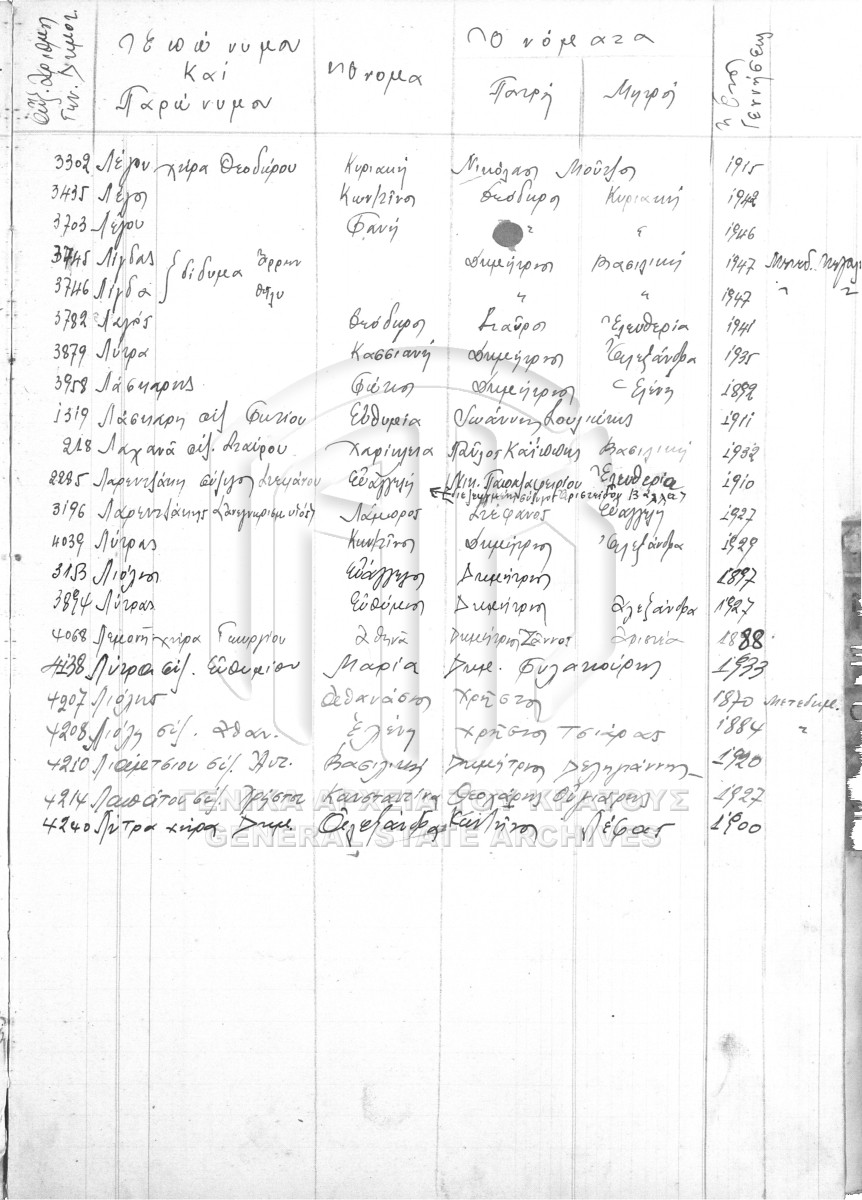 Αὔξ. Ἀριθμὸς Γεν. Δημοτ.
Ἐπώνυμον Καὶ Παρώνυμον
Ὄνομα
Ὀνόματα
Πατρὸς Μητρὸς
Ἔτος Γεννήσεως
3302 Λέγου χήρα Θεοδώρου Κυριακή Νικόλαος Μούτσος 1915
3435 Λέγος Κων/τῖνος Θεόδωρος Κυριακή 1942
3703 Λέγου Φανή " " 1946
3745 Λίγδας δίδυμα Ἄρρεν Δημήτριος Βασιλική 1947
3746 Λίγδα θῆλυ " " 1947 "
3782 Λαγός Θεόδωρος Σταῦρος Ἐλευθερία 1941
3879 Λύτρα Κασσιανή Δημήτριος Ἀλεξάνδρα 1935
3958 Λάσκαρης Φώτιος Δημήτριος Ἑλένη 1892
1319 Λάσκαρη σύζ. Φωτίου Εὐθυμία Ἰωάννης 1911
218 Λαχανᾶ σύζ. Σταύρου Χαρίκλεια Παῦλος Βασιλική 1932
2285 Λαρεντζάκη σύζυγος Στεφάνου Εὐαγγελή Νικ. Ἐλευθερία 1910
3196 Λαρεντζάκης Λάμπρος Στέφανος Εὐαγγελή 1927
4039 Λύτρας Κων/τῖνος Δημήτριος Ἀλεξάνδρα 1929
3153 Λιόλιος Εὐάγγελος Δημήτριος 1897
3894 Λύτρας Εὐθύμιος Δημήτριος Ἀλεξάνδρα 1927
4068 Λεμονῆ χήρα Γεωργίου Ἀθηνᾶ Δημήτριος Ζάννος 1888
4138 Λύτρα σύζ. Εὐθυμίου Μαρία Δημ. 1933
4207 Λιόλης Ἀθανάσιος Χρῆστος 1870 Μετεδημ.
4208 Λιόλη σύζ. Ἀθαν. Ἑλένη Χρῆστος Τσιάρας 1884 "
4210 σύζ. Ἀντ. Βασιλική Δημήτριος Δεληγιάννης 1920
4214 σύζ. Χρήστου Κωνσταντίνα Θεοχάρης 1927
4240 Λύτρα χήρα Δημ. Ἀλεξάνδρα Κων/τῖνος Λέφας 1900
ΓΕΝΙΚΑ ΑΡΧΕΙΑ ΤΟΥ ΚΡΑΤΟΥΣ
GENERAL STATE ARCHIVES